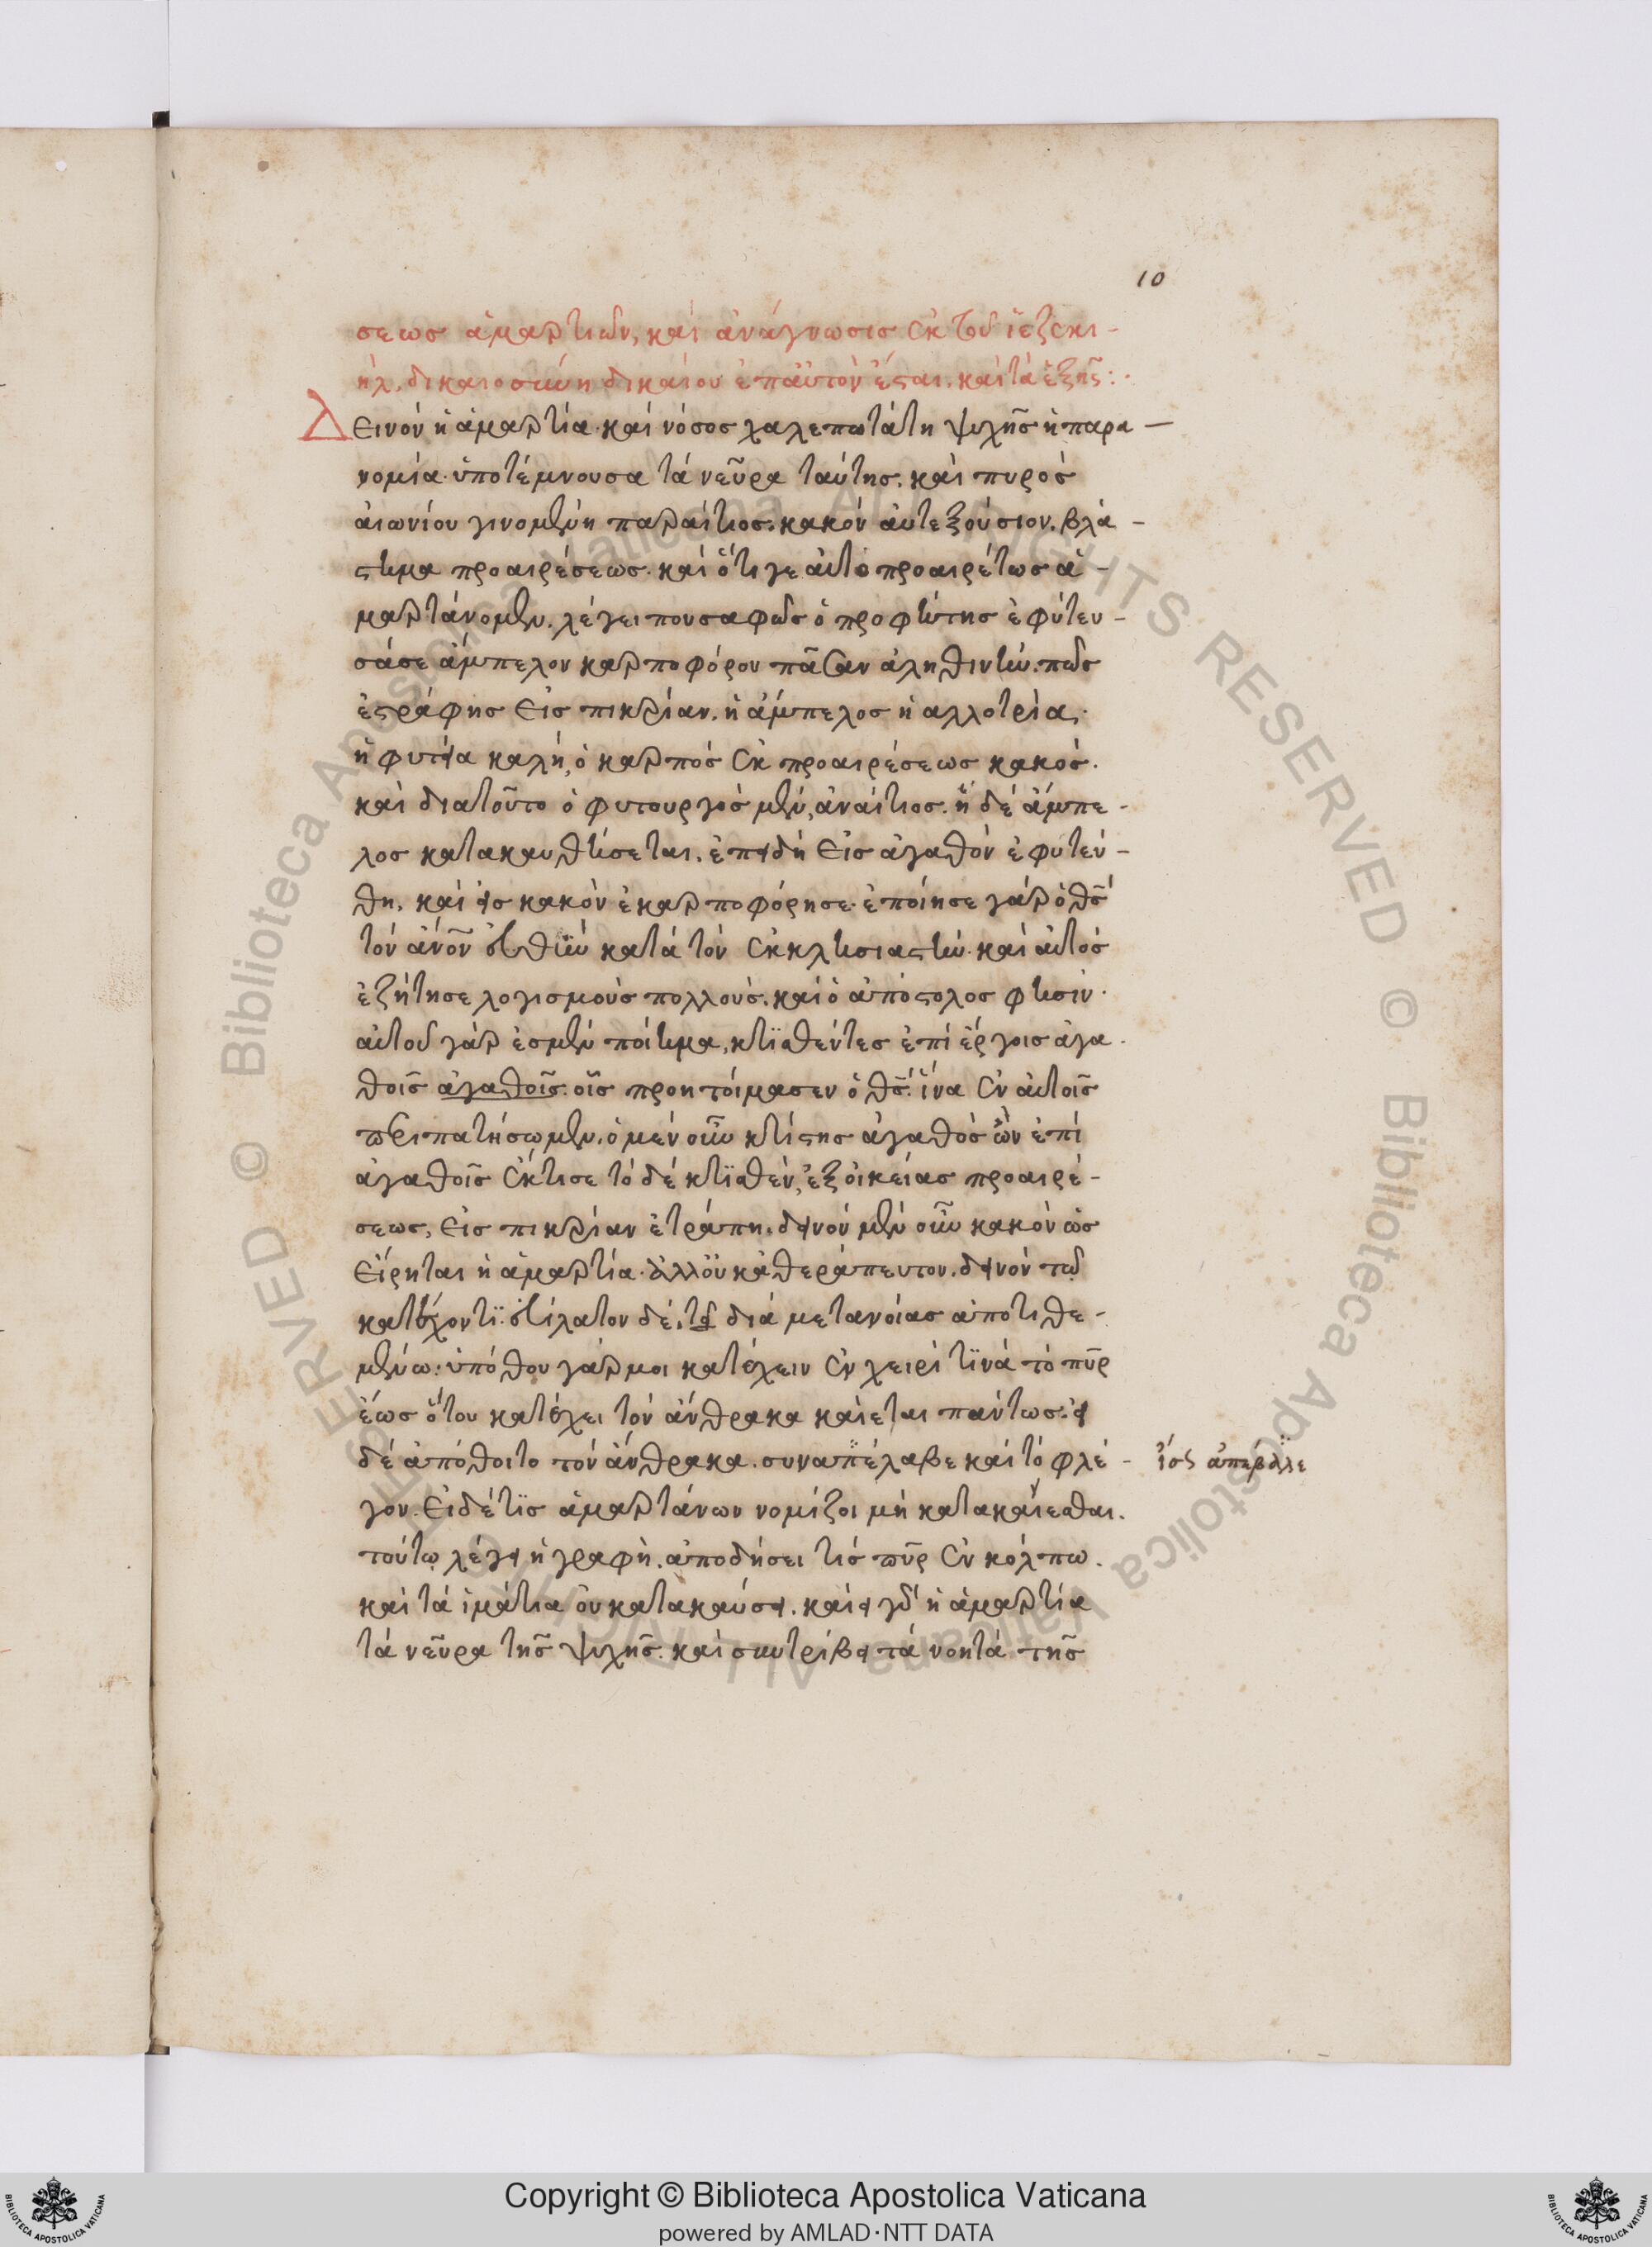 10
σεως ἁμαρτιῶν, καὶ ἀνάγνωσις ἐκ τοῦ ἰεζεκι-
ήλ. δικαιοσύνη δικαίου ἐπαὐτὸν ἔσται. καὶ τὰ ἑξῆς:.
Δεινόν ἡ ἁμαρτία· καὶ νόσος χαλεπωτάτη ψυχῆς ἡ παρα-
νομία· ὑποτέμνουσα τὰ νεῦρα ταύτης. καὶ πυρὸς
αἰωνίου γινομένη παραίτιος. κακὸν αὐτεξούσιον. βλά-
στημα προαιρέσεως. καὶ ὅτι γε αὐτο προαιρέτως ἁ-
μαρτάνομεν. λέγει που σαφῶς ὁ προφήτης ἐφύτευ-
σά σε ἄμπελον καρποφόρον πᾶσαν ἀληθινήν. πῶς
ἐστράφης εἰς πικρίαν. ἡ ἄμπελος ἡ αλλοτρία.
ἡ φυτεία καλή, ὁ καρπὸς ἐκ προαιρέσεως κακός.
καὶ διατοῦτο ὁ φυτουργὸς μὲν, ἀναίτιος. ἡ δὲ ἄμπε-
λος κατακαυθήσεται. ἐπειδὴ εἰς ἀγαθὸν ἐφυτεύ-
θη. καὶ εἰς κακὸν ἐκαρποφόρησε· ἐποίησε γὰρ ὁ θς
τὸν ἀνον εὐθῆ κατὰ τὸν ἐκκλησιαστήν. καὶ αὐτὸς
ἐζήτησε λογισμοὺς πολλούς. καὶ ὁ ἀπόστολος φησιν·
αὐτοῦ γάρ ἐσμὲν ποίημα, κτισθέντες ἐπὶ ἔργοις ἀγα-
θοῖς ἀγαθοῖς. οἷς προητοίμασεν ὁ θς. ἵνα ἐν αὐτοῖς
περιπατήσωμεν. ὁ μὲν οὖν κτίστης ἀγαθὸς ὢν ἐπὶ
ἀγαθοῖς ἔκτισε τὸ δὲ κτισθὲν, ἐξ οἰκείας προαιρέ-
σεως, εἰς πικρίαν ἐτράπη. δεινὸν μὲν οὖν κακὸν ὡς
εἴρηται ἡ ἁμαρτία. ἀλλοὐκ ἀθεράπευτον. δεινὸν τῷ
κατέχοντι. εὐίλατον δέ, τῷ διὰ μετανοίας ἀποτιθε-
μένω: ὑπόθου γάρ μοι κατέχειν ἐν χειρὶ τινὰ τὸ πῦρ
ἕως ὅτου κατέχει τὸν ἄνθρακα καίεται πάντως. εἰ
δὲ ἀπόθοιτο τὸν ἄνθρακα. συναπέλαβε καὶ τὸ φλέ- ἴσς ἀπέβαλλε
γον. εἰ δέ τις ἁμαρτάνων νομίζοι μὴ κατακαίεσθαι.
τούτῳ λέγει ἡ γραφὴ. ἀποδήσει τίς πῦρ ἐν κόλπω.
καὶ τὰ ἱμάτια οὐ κατακαύσει. καίει γὰρ ἡ ἁμαρτία
τὰ νεῦρα τῆς ψυχῆς. καὶ συντρίβει τὰ νοητὰ τῆς
Copyright © Biblioteca Apostolica Vaticana
powered by AMLAD·NTT DATA